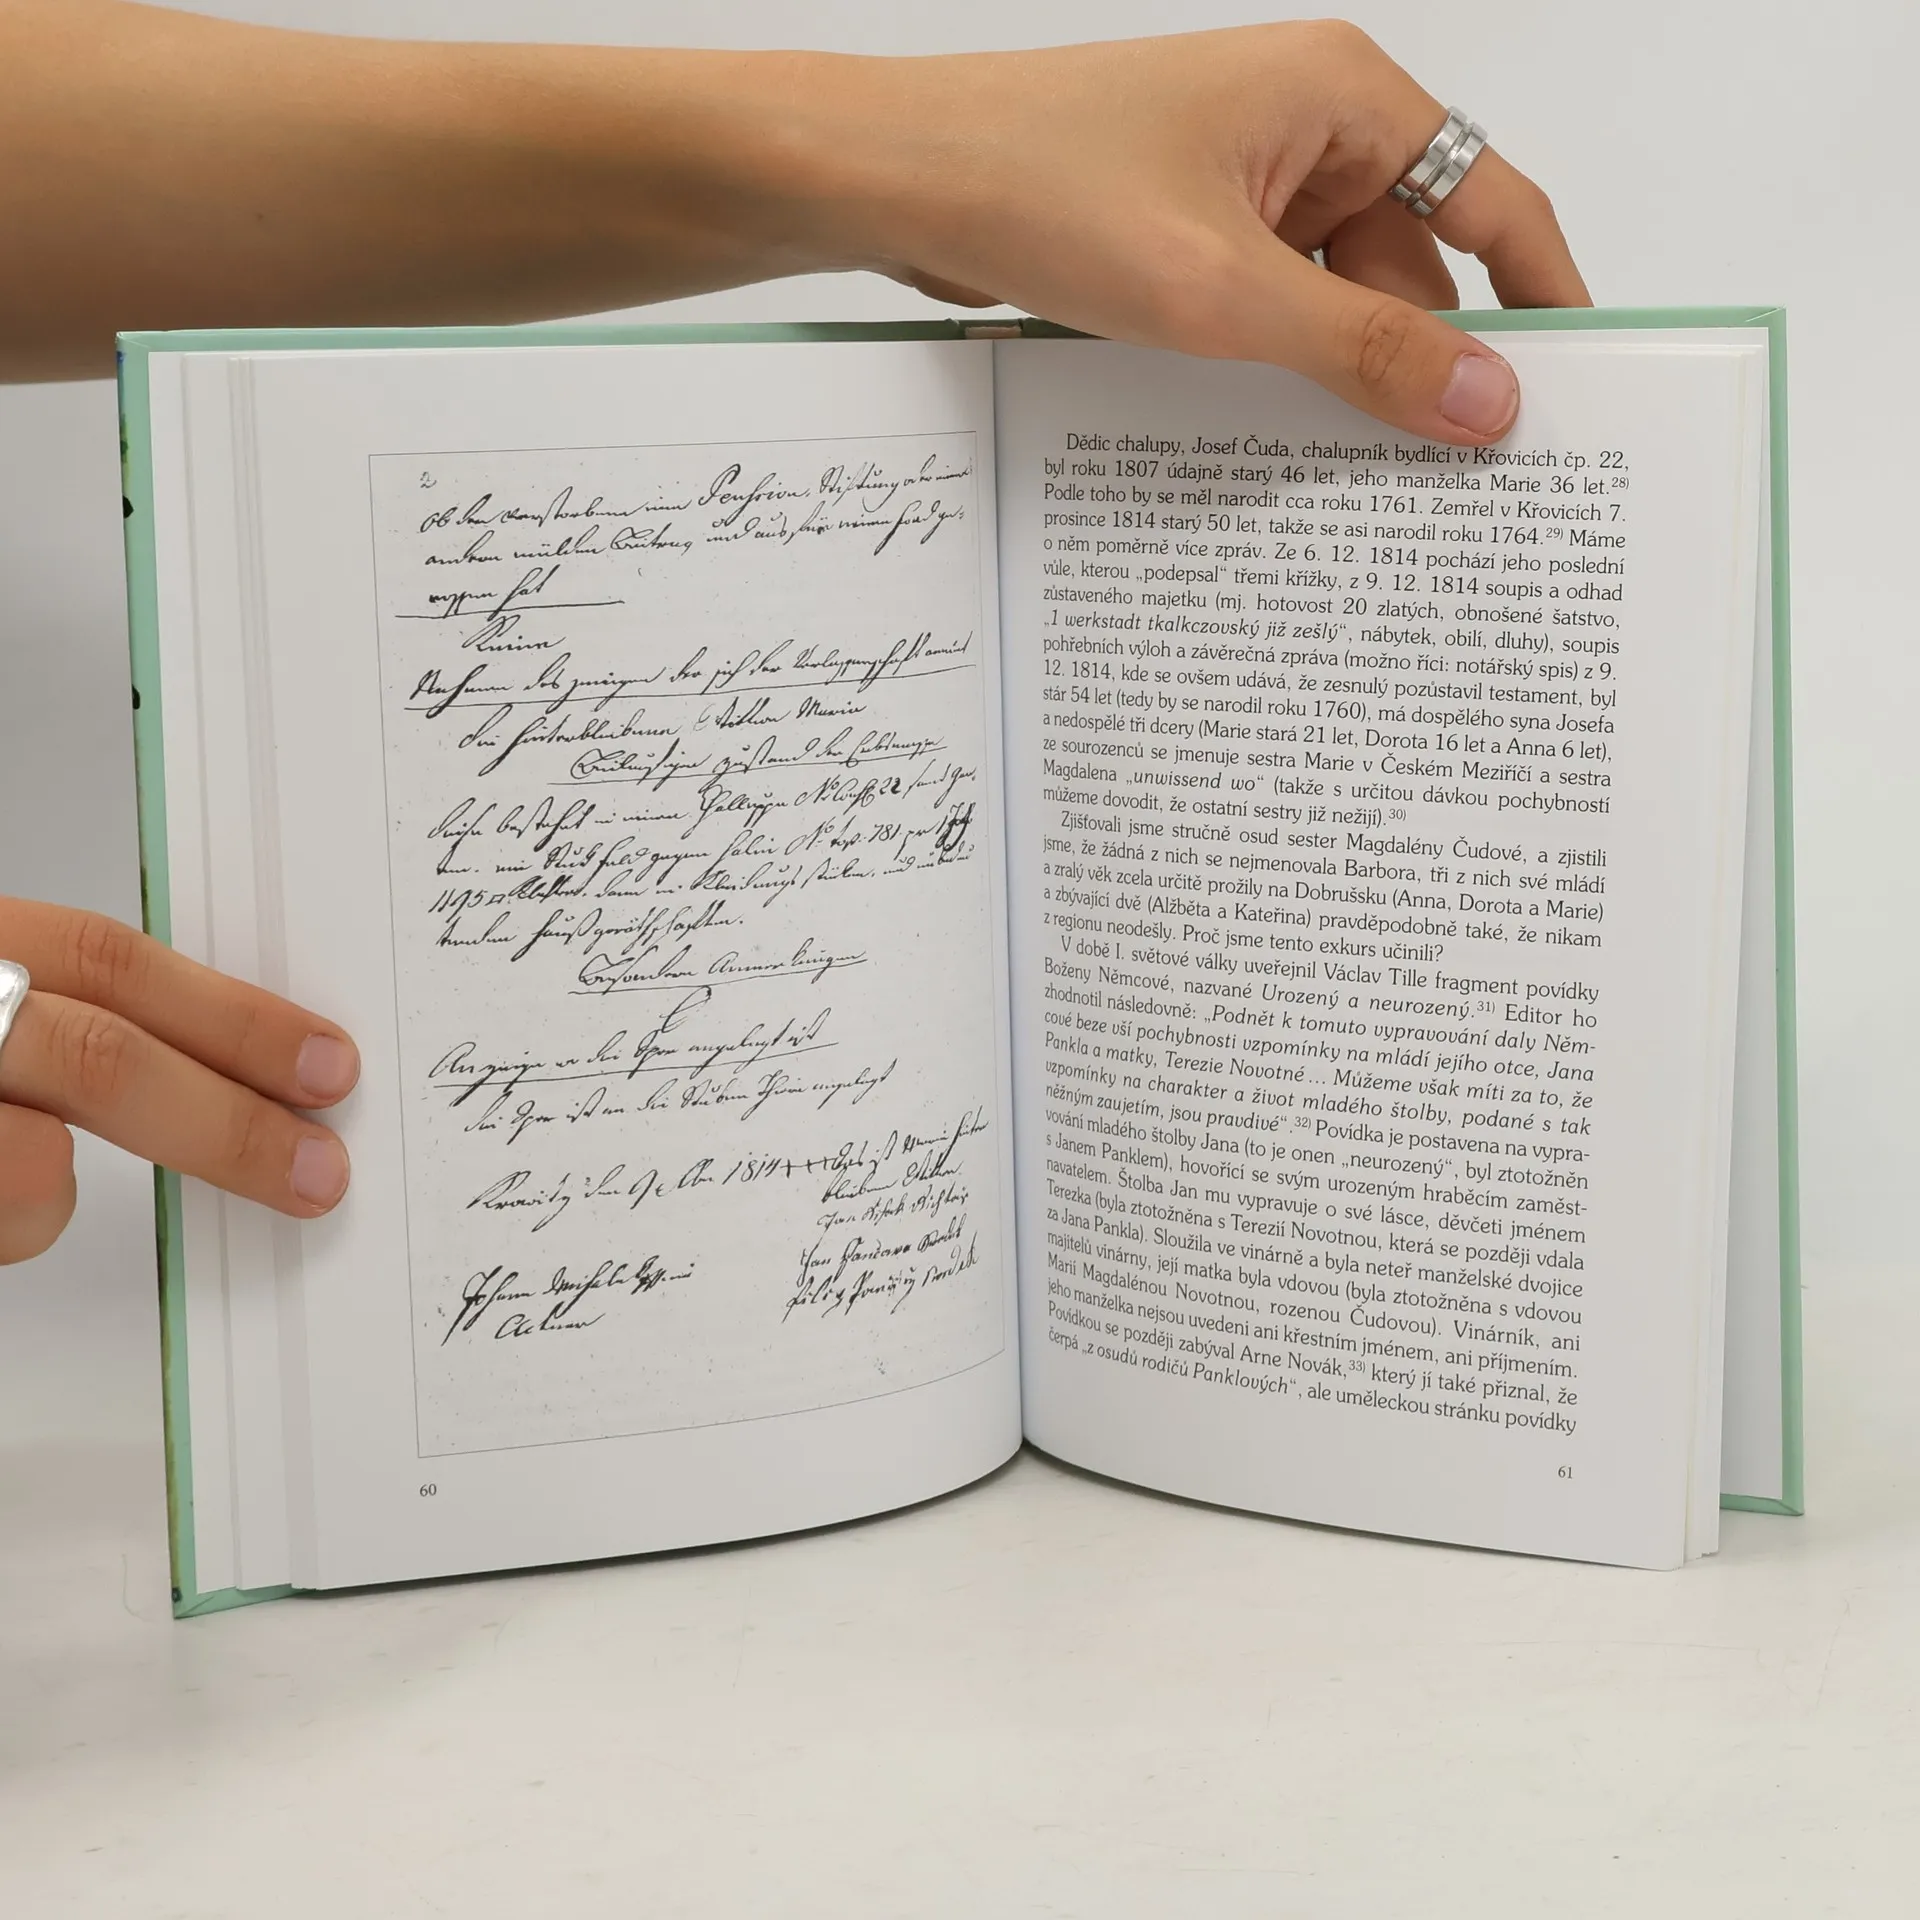 2
Ob der Verstorbene eine Pension, Stiftung oder einen
andern milden Beitrag und aus für einen Fond ge-
nossen hat
Keine
Nahmen des jenigen der sich der Verlassenschaft annimt
Die hinterbliebene Wittwe Maria
Zustand der
besteht in einer Challuppe No Consc 22 samt Gar-
ten. ein Stuck Feld No top. 781 pr 1 Joch
1195 □ Klafter. dann in Kleidungs stüken, und
Hauß geräthschaften.
Besondere Anmerkungen
Anzeige wo die Sper angelegt ist
Die Sper ist an die Stuben Thür angelegt
den 9. 1814 +++ das ist Maria hinter
bliebene Wittwe.
Jan
Jan
Johann
60
Dědic chalupy, Josef Čuda, chalupník bydlící v Křovicích čp. 22,
byl roku 1807 údajně starý 46 let, jeho manželka Marie 36 let.28)
Podle toho by se měl narodit cca roku 1761. Zemřel v Křovicích 7.
prosince 1814 starý 50 let, takže se asi narodil roku 1764.29) Máme
o něm poměrně více zpráv. Ze 6. 12. 1814 pochází jeho poslední
vůle, kterou „podepsal“ třemi křížky, z 9. 12. 1814 soupis a odhad
zůstaveného majetku (mj. hotovost 20 zlatých, obnošené šatstvo,
„1 werkstadt tkalkczovský již zešlý“, nábytek, obilí, dluhy), soupis
pohřebních výloh a závěrečná zpráva (možno říci: notářský spis) z 9.
12. 1814, kde se ovšem udává, že zesnulý pozůstavil testament, byl
stár 54 let (tedy by se narodil roku 1760), má dospělého syna Josefa
a nedospělé tři dcery (Marie stará 21 let, Dorota 16 let a Anna 6 let),
ze sourozenců se jmenuje sestra Marie v Českém Meziříčí a sestra
Magdalena „unwissend wo“ (takže s určitou dávkou pochybností
můžeme dovodit, že ostatní sestry již nežijí).30)
Zjišťovali jsme stručně osud sester Magdalény Čudové, a zjistili
jsme, že žádná z nich se nejmenovala Barbora, tři z nich své mládí
a zralý věk zcela určitě prožily na Dobrušsku (Anna, Dorota a Marie)
a zbývající dvě (Alžběta a Kateřina) pravděpodobně také, že nikam
z regionu neodešly. Proč jsme tento exkurs učinili?
V době I. světové války uveřejnil Václav Tille fragment povídky
Boženy Němcové, nazvané Urozený a neurozený.31) Editor ho
zhodnotil následovně: „Podnět k tomuto vypravování daly Něm-
cové beze vší pochybnosti vzpomínky na mládí jejího otce, Jana
Pankla a matky, Terezie Novotné ... Můžeme však míti za to, že
vzpomínky na charakter a život mladého štolby, podané s tak
něžným zaujetím, jsou pravdivé“.32) Povídka je postavena na vypra-
vování mladého štolby Jana (to je onen „neurozený“, byl ztotožněn
s Janem Panklem), hovořící se svým urozeným hraběcím zaměst-
navatelem. Štolba Jan mu vypravuje o své lásce, děvčeti jménem
Terezka (byla ztotožněna s Terezií Novotnou, která se později vdala
za Jana Pankla). Sloužila ve vinárně a byla neteř manželské dvojice
majitelů vinárny, její matka byla vdovou (byla ztotožněna s vdovou
Marií Magdalénou Novotnou, rozenou Čudovou). Vinárník, ani
jeho manželka nejsou uvedeni ani křestním jménem, ani příjmením.
Povídkou se později zabýval Arne Novák,33) který jí také přiznal, že
čerpá „z osudů rodičů Panklových“, ale uměleckou stránku povídky
61